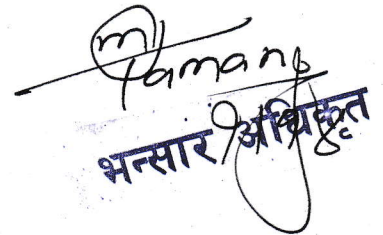 Tamang
भन्सार अधिकृत